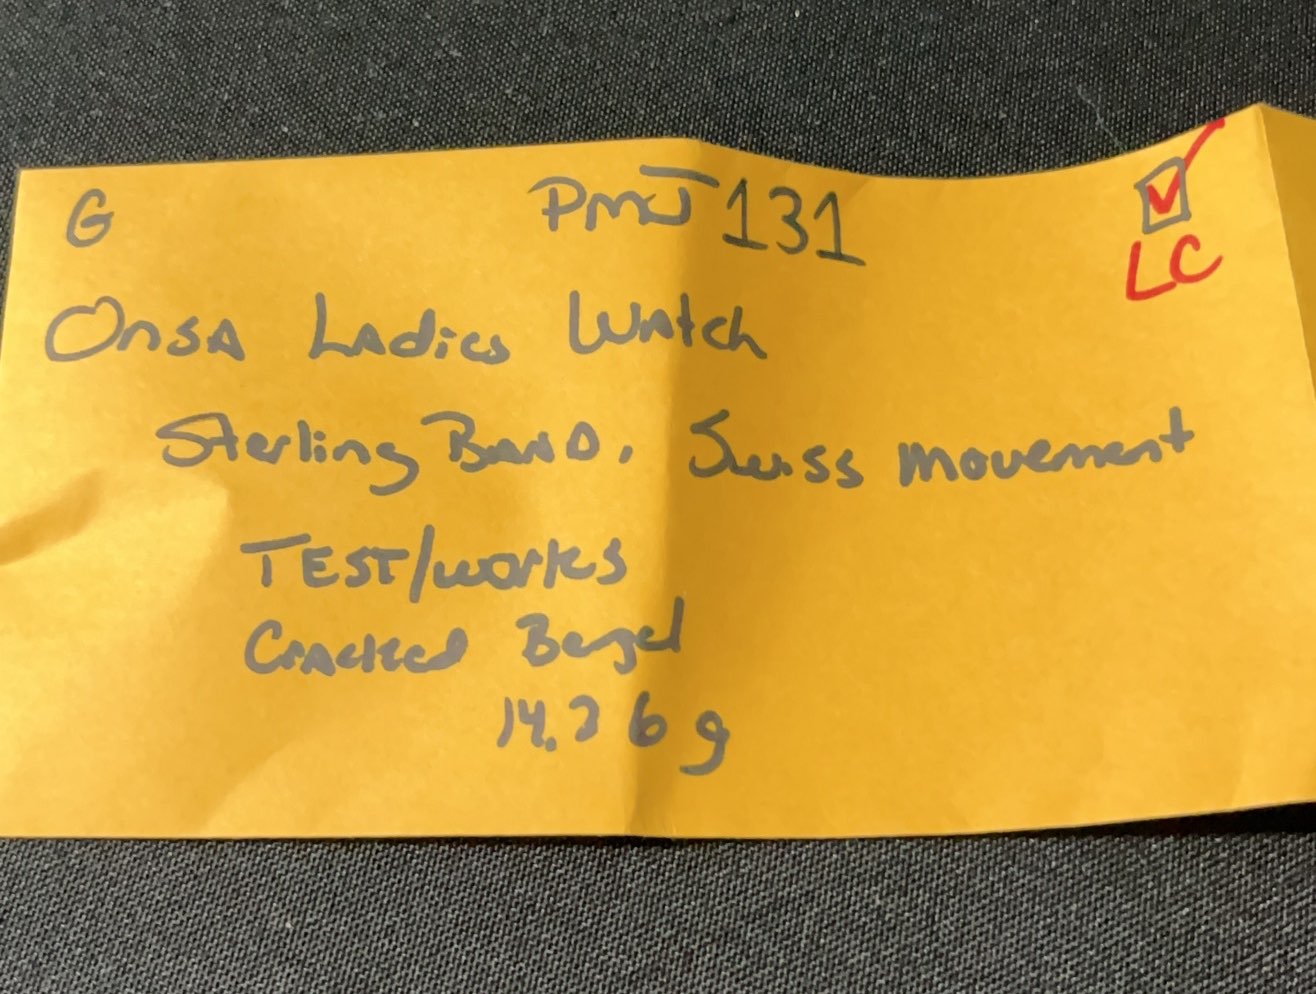 G PMJ 131 LC
Onsa Ladies Watch
Sterling Band, Swiss movement
TEST/works
Cracked Bezel
14.26 g